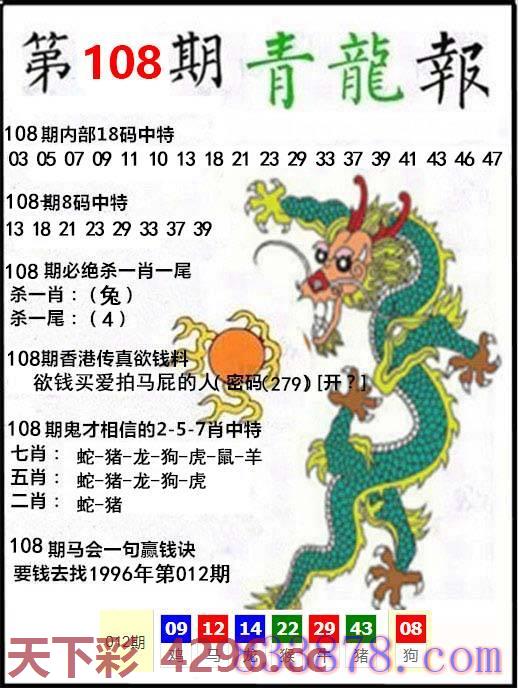 第108期 青龍報
108期内部18码中特
03 05 07 09 11 10 13 18 21 23 29 33 37 39 41 43 46 47
108期8码中特
13 18 21 23 29 33 37 39
108期必绝杀一肖一尾
杀一肖：（兔）
杀一尾：（4）
108期香港传真欲钱料
欲钱买爱拍马屁的人(密码(279)[开？]
108期鬼才相信的2-5-7肖中特
七肖： 蛇-猪-龙-狗-虎-鼠-羊
五肖： 蛇-猪-龙-狗-虎
二肖： 蛇-猪
108期马会一句赢钱诀
要钱去找1996年第012期
012期 09 12 14 22 29 43 08
鸡 马 龙 猴 牛 猪 狗
天下彩